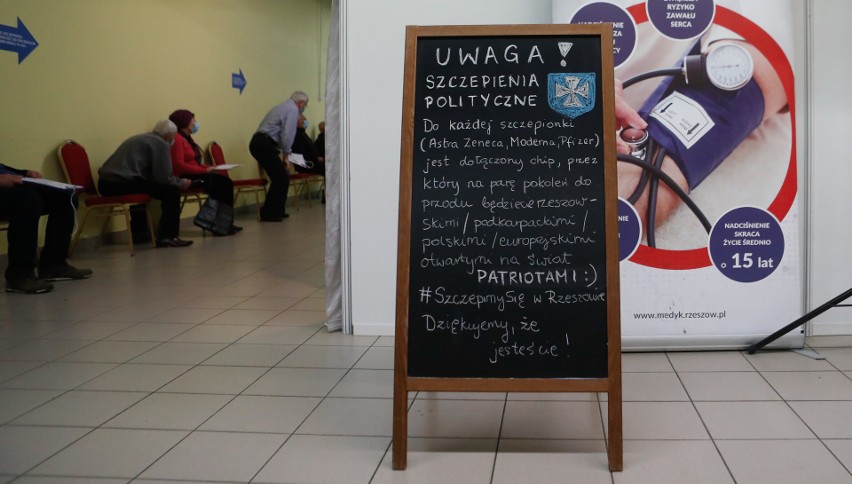 UWAGA!
SZCZEPIENIA
POLITYCZNE
Do każdej szczepionki
(Astra Zeneca, Moderna, Pfizer)
jest dołączony chip, przez
który na parę pokoleń do
przodu będziecie rzeszow-
skimi/podkarpackimi/
polskimi/europejskimi
otwartymi na świat
PATRIOTAMI :)
#SzczepimySię w Rzeszowie
Dziękujemy, że
jesteście!
RYZYKO
ZAWAŁU
SERCA
NADCIŚNIENIE
SKRACA
ŻYCIE ŚREDNIO
o 15 lat
www.medyk.rzeszow.pl